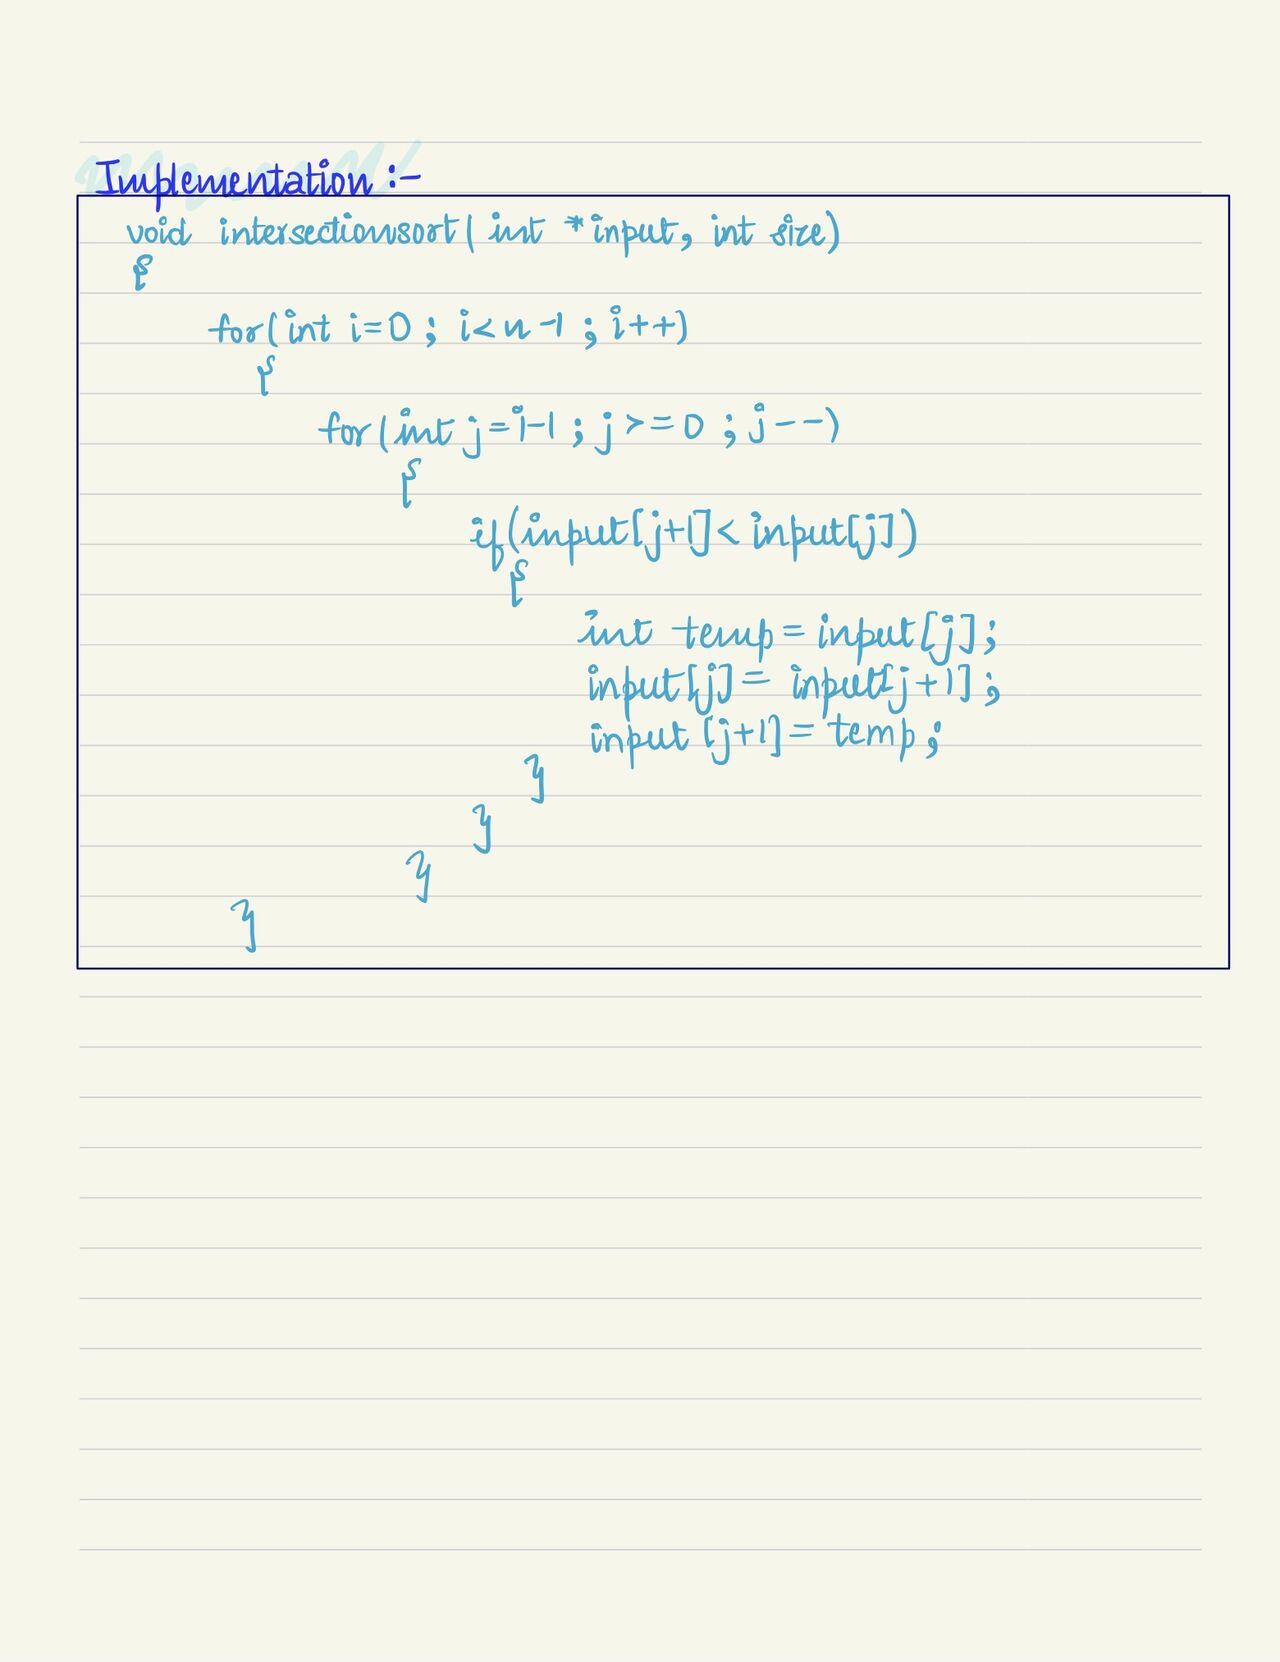 Implementation :-
void intersectionsort( int *input, int size)
{
for(int i=0 ; i<n-1 ; i++)
{
for(int j=i-1 ; j>=0 ; j--)
{
if(input[j+1]< input[j])
{
int temp= input[j];
input[j]= input[j+1];
input [j+1]= temp;
}
}
}
}